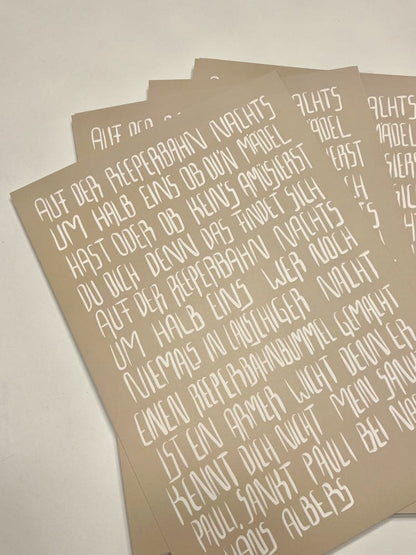 AUF DER REEPERBAHN NACHTS
UM HALB EINS OB DUN MÄDEL
HAST ODER OB KEINS AMÜSIERST
DU DICH DENN DAS FINDET SICH
AUF DER REEPERBAHN NACHTS
UM HALB EINS WER NOCH
NIEMAS IN LAUSCHIGER NACHT
EINEN REEPERBAHNBUMMEL GEMACHT
IST EIN ARMER WICHT DENN ER
KENNT DICH NICHT MEIN SANKT
PAULI, SANKT PAULI BEI
HANS ALBERS
AUF DER